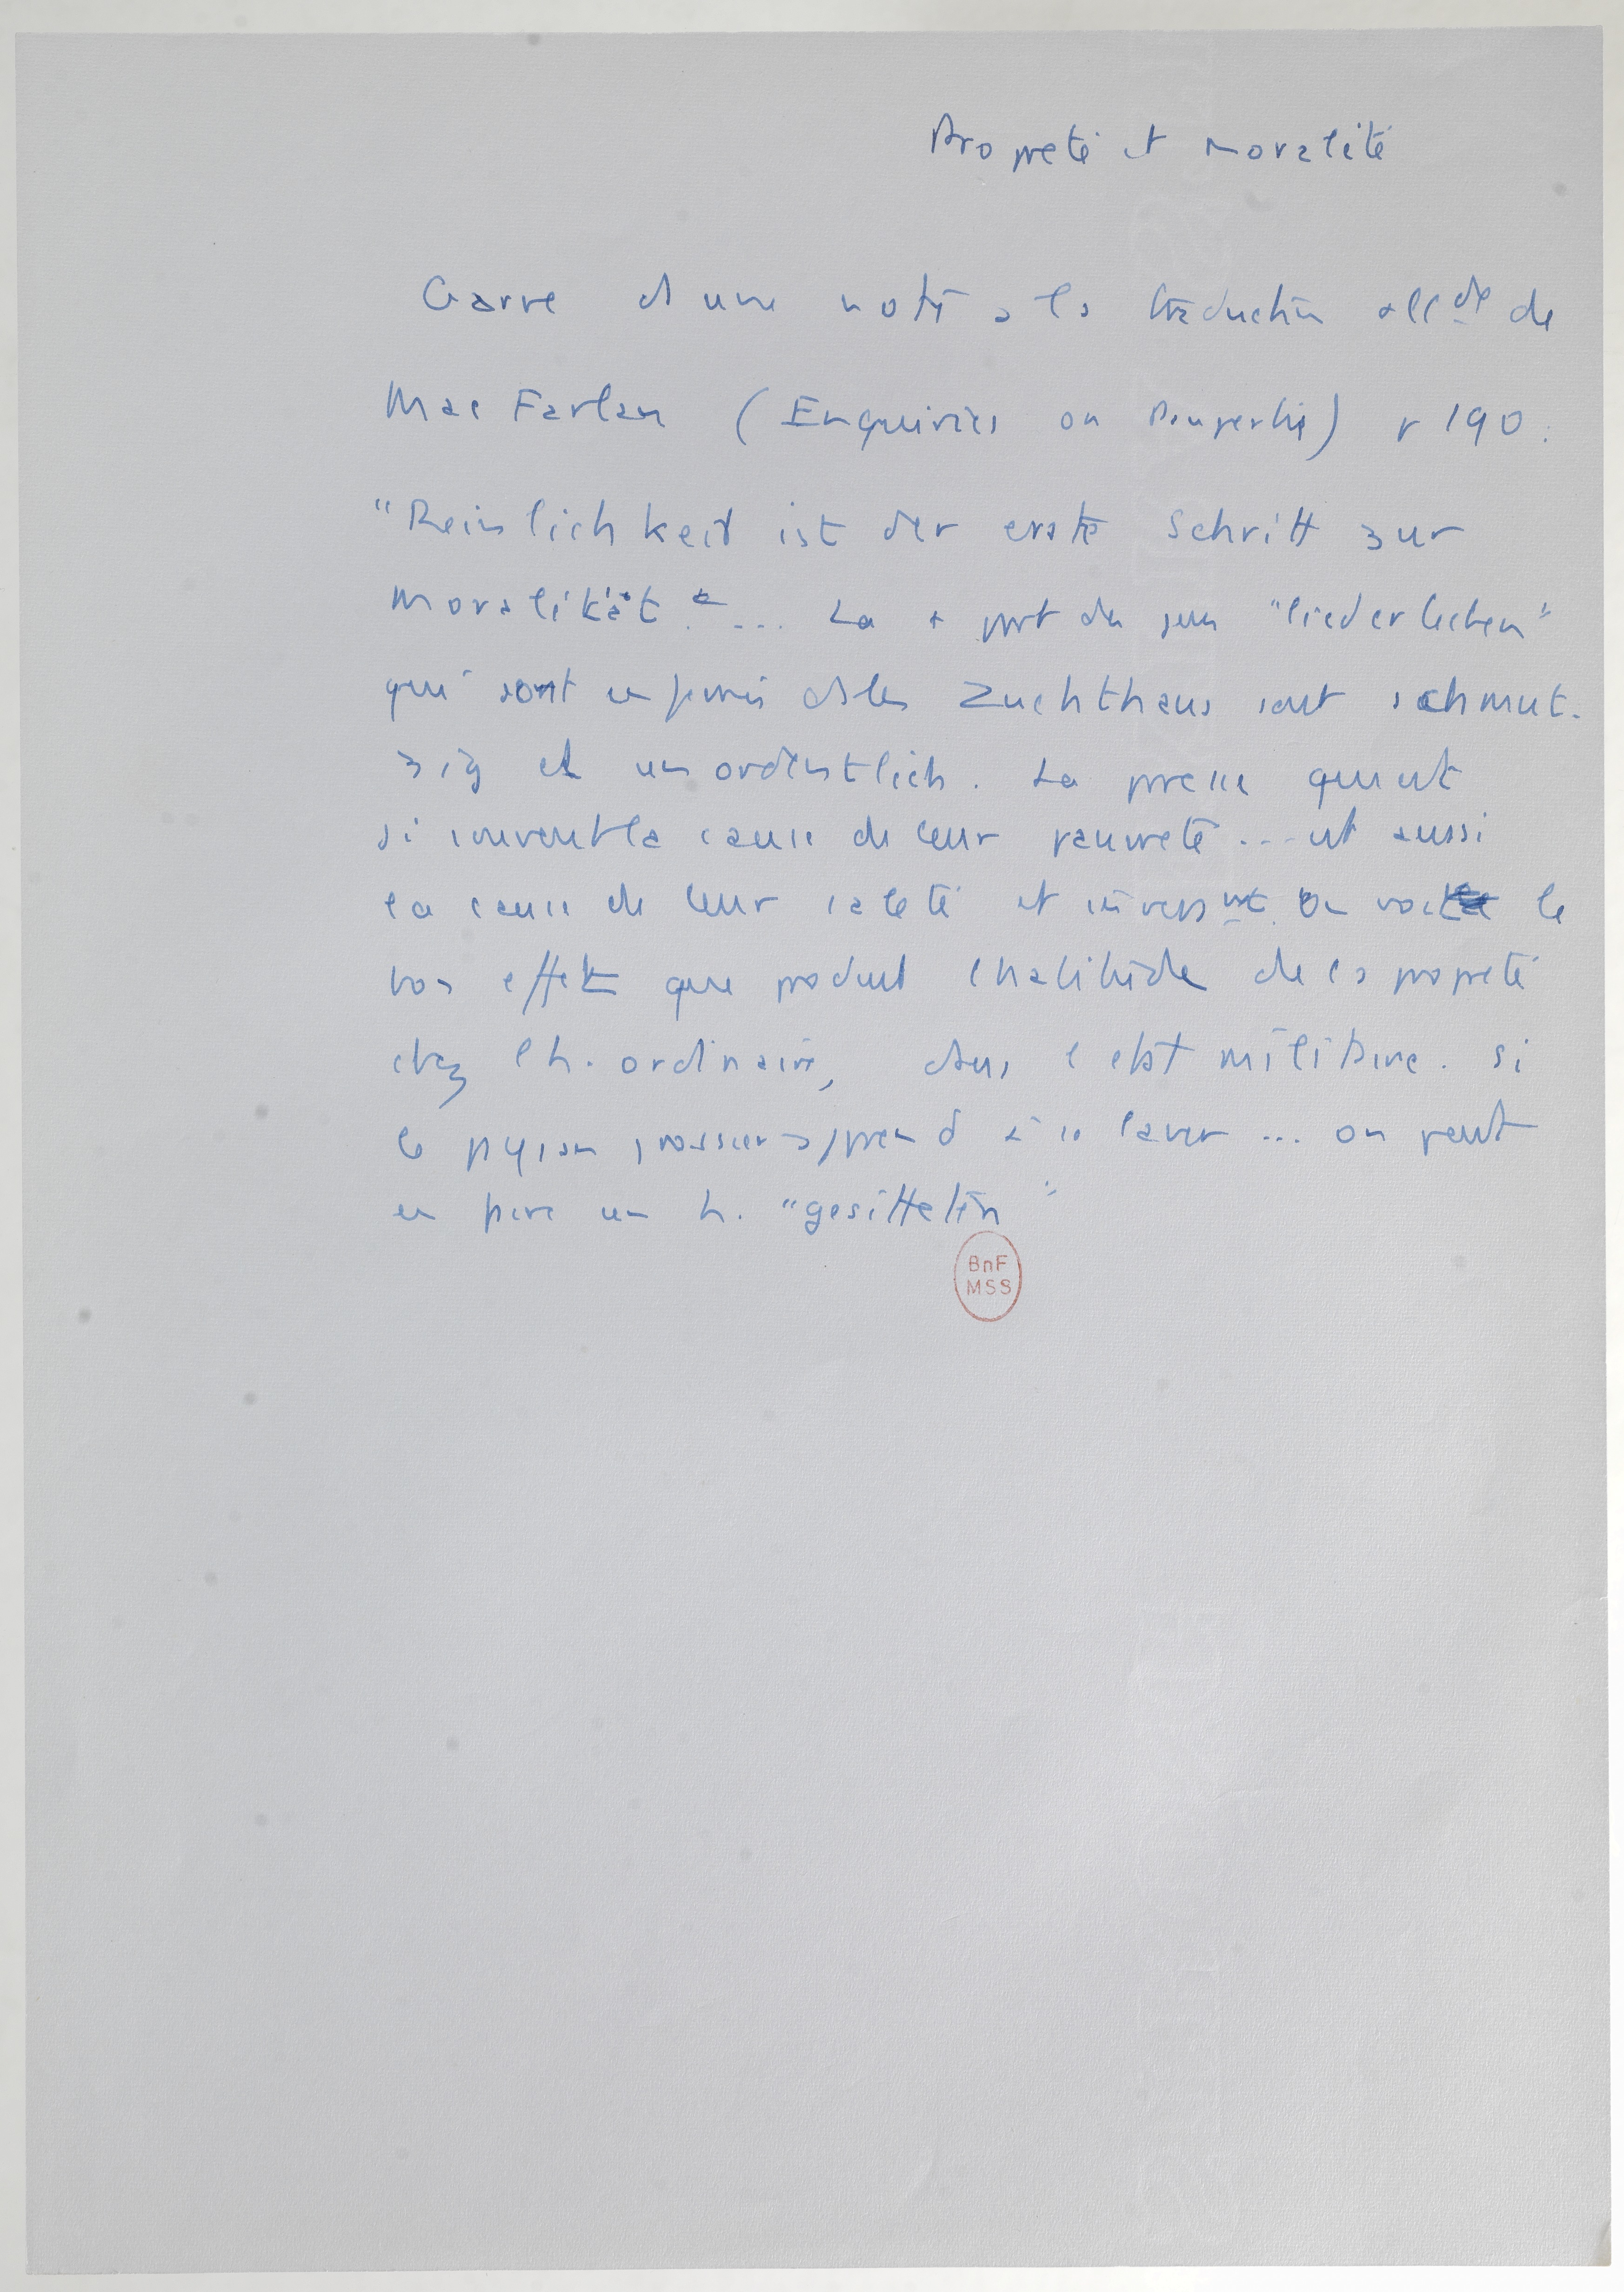 Propreté et moralité
Garve ds une note à la traduction allde de
Mac Farlan (Enquiries on Pauperhis) p 190.
"Reinlichkeit ist der erste Schritt zur
Moralität" .... La + part des gens "liederlichen"
qui sont enfermés ds les Zuchthaus sont schmut-
zig et unordentlich. La presse qui est
si souvent la cause de leur pauvreté ... est aussi
la cause de leur saleté et inversmt. On voit le
bon effet que produit l'habitude de la propreté
chez l'h. ordinaire, dans l'etat militaire. Si
le paysan grossier apprend à se laver ... on peut
en faire un h. "gesitteten"
BnF
MSS